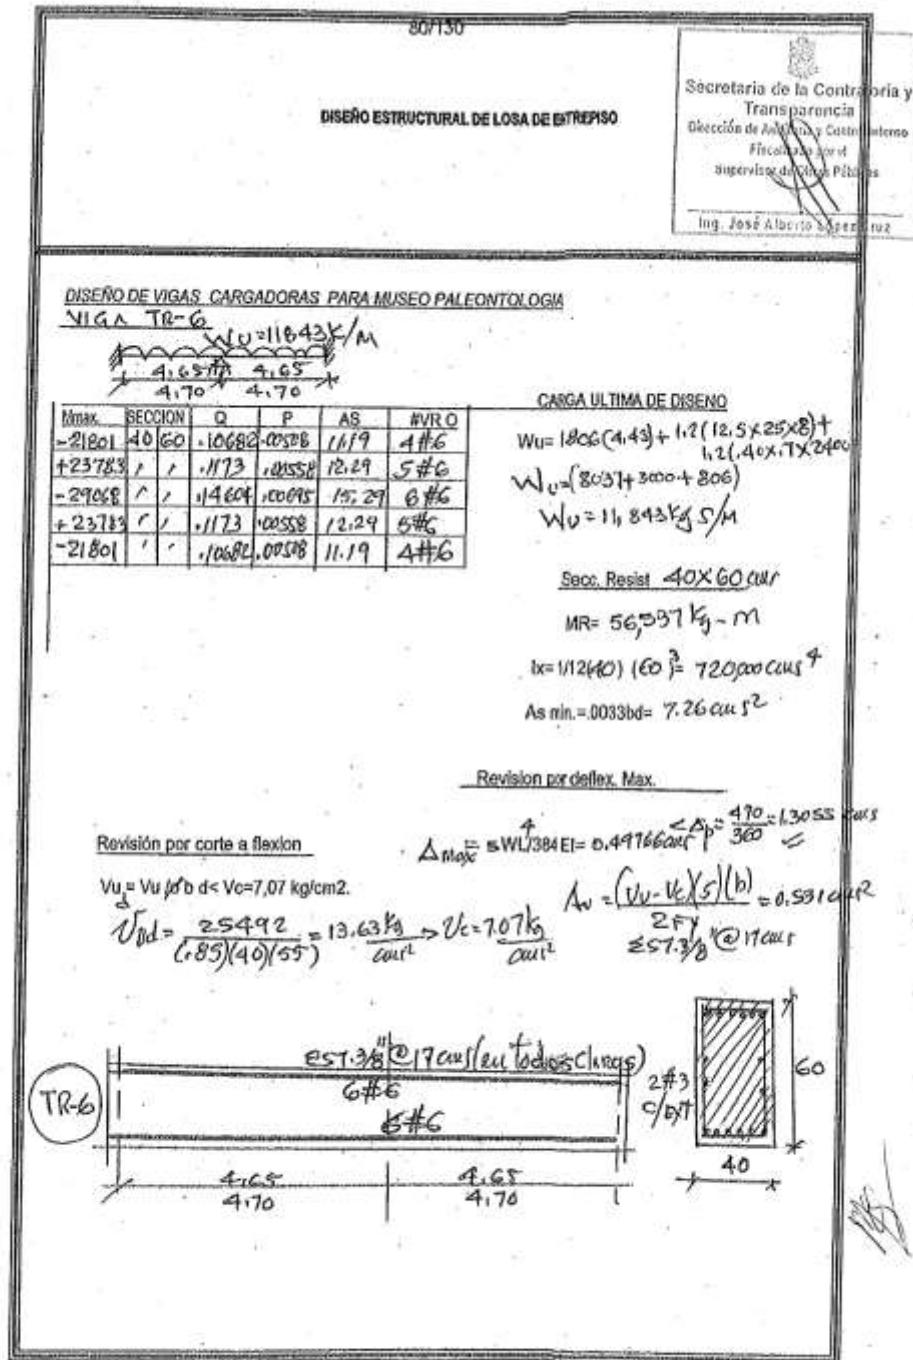 80/130
DISEÑO ESTRUCTURAL DE LOSA DE ENTREPISO
Secretaria de la Contraloria y
Transparencia
Dirección de Auditoria y Control Interno
Fiscalizado por el
Supervisor de Obras Públicas
Ing. José Alberto López Cruz
DISEÑO DE VIGAS CARGADORAS PARA MUSEO PALEONTOLOGIA
VIGA TR-6
WU=11843K/M
4.65 4.65
4.70 4.70
Mmax. SECCION Q P AS #VR O
-21801 40 60 .10682 .00508 11.19 4#6
+23783 , , .1173 .00558 12.29 5#6
-29068 , , .14604 .00695 15.29 6#6
+23783 , , .1173 .00558 12.29 5#6
-21801 , , .10682 .00508 11.19 4#6
CARGA ULTIMA DE DISEÑO
Wu= 1806(4.43)+1.2(12.5x25x8)+
1.2(.40x.7x2400
WU=(8037+3000+806)
WU=11,843Kg S/M
Secc. Resist 40X60 cms
MR= 56,537 Kg-m
Ix=1/12(40) (60)³= 720,000 cms⁴
As min.=.0033bd= 7.26 cms²
Revision por deflex. Max.
Δmax = 5WL⁴/384EI= 0.49766cms <Δp= 470/360 =1.3055 cms
Revisión por corte a flexion
Vu= Vu /Ø b d< Vc=7,07 kg/cm2.
Vud= 25492/(.85)(40)(55) =13.63 kg/cms² > Vc=7.07 kg/cms²
Av= (Vu-Vc)(s)(b)/2FY =0.531cms²
EST.3/8"@17cms
EST.3/8"@17cms(en todos claros)
6#6
5#6
TR-6
4.65 4.65
4.70 4.70
2#3
60
40